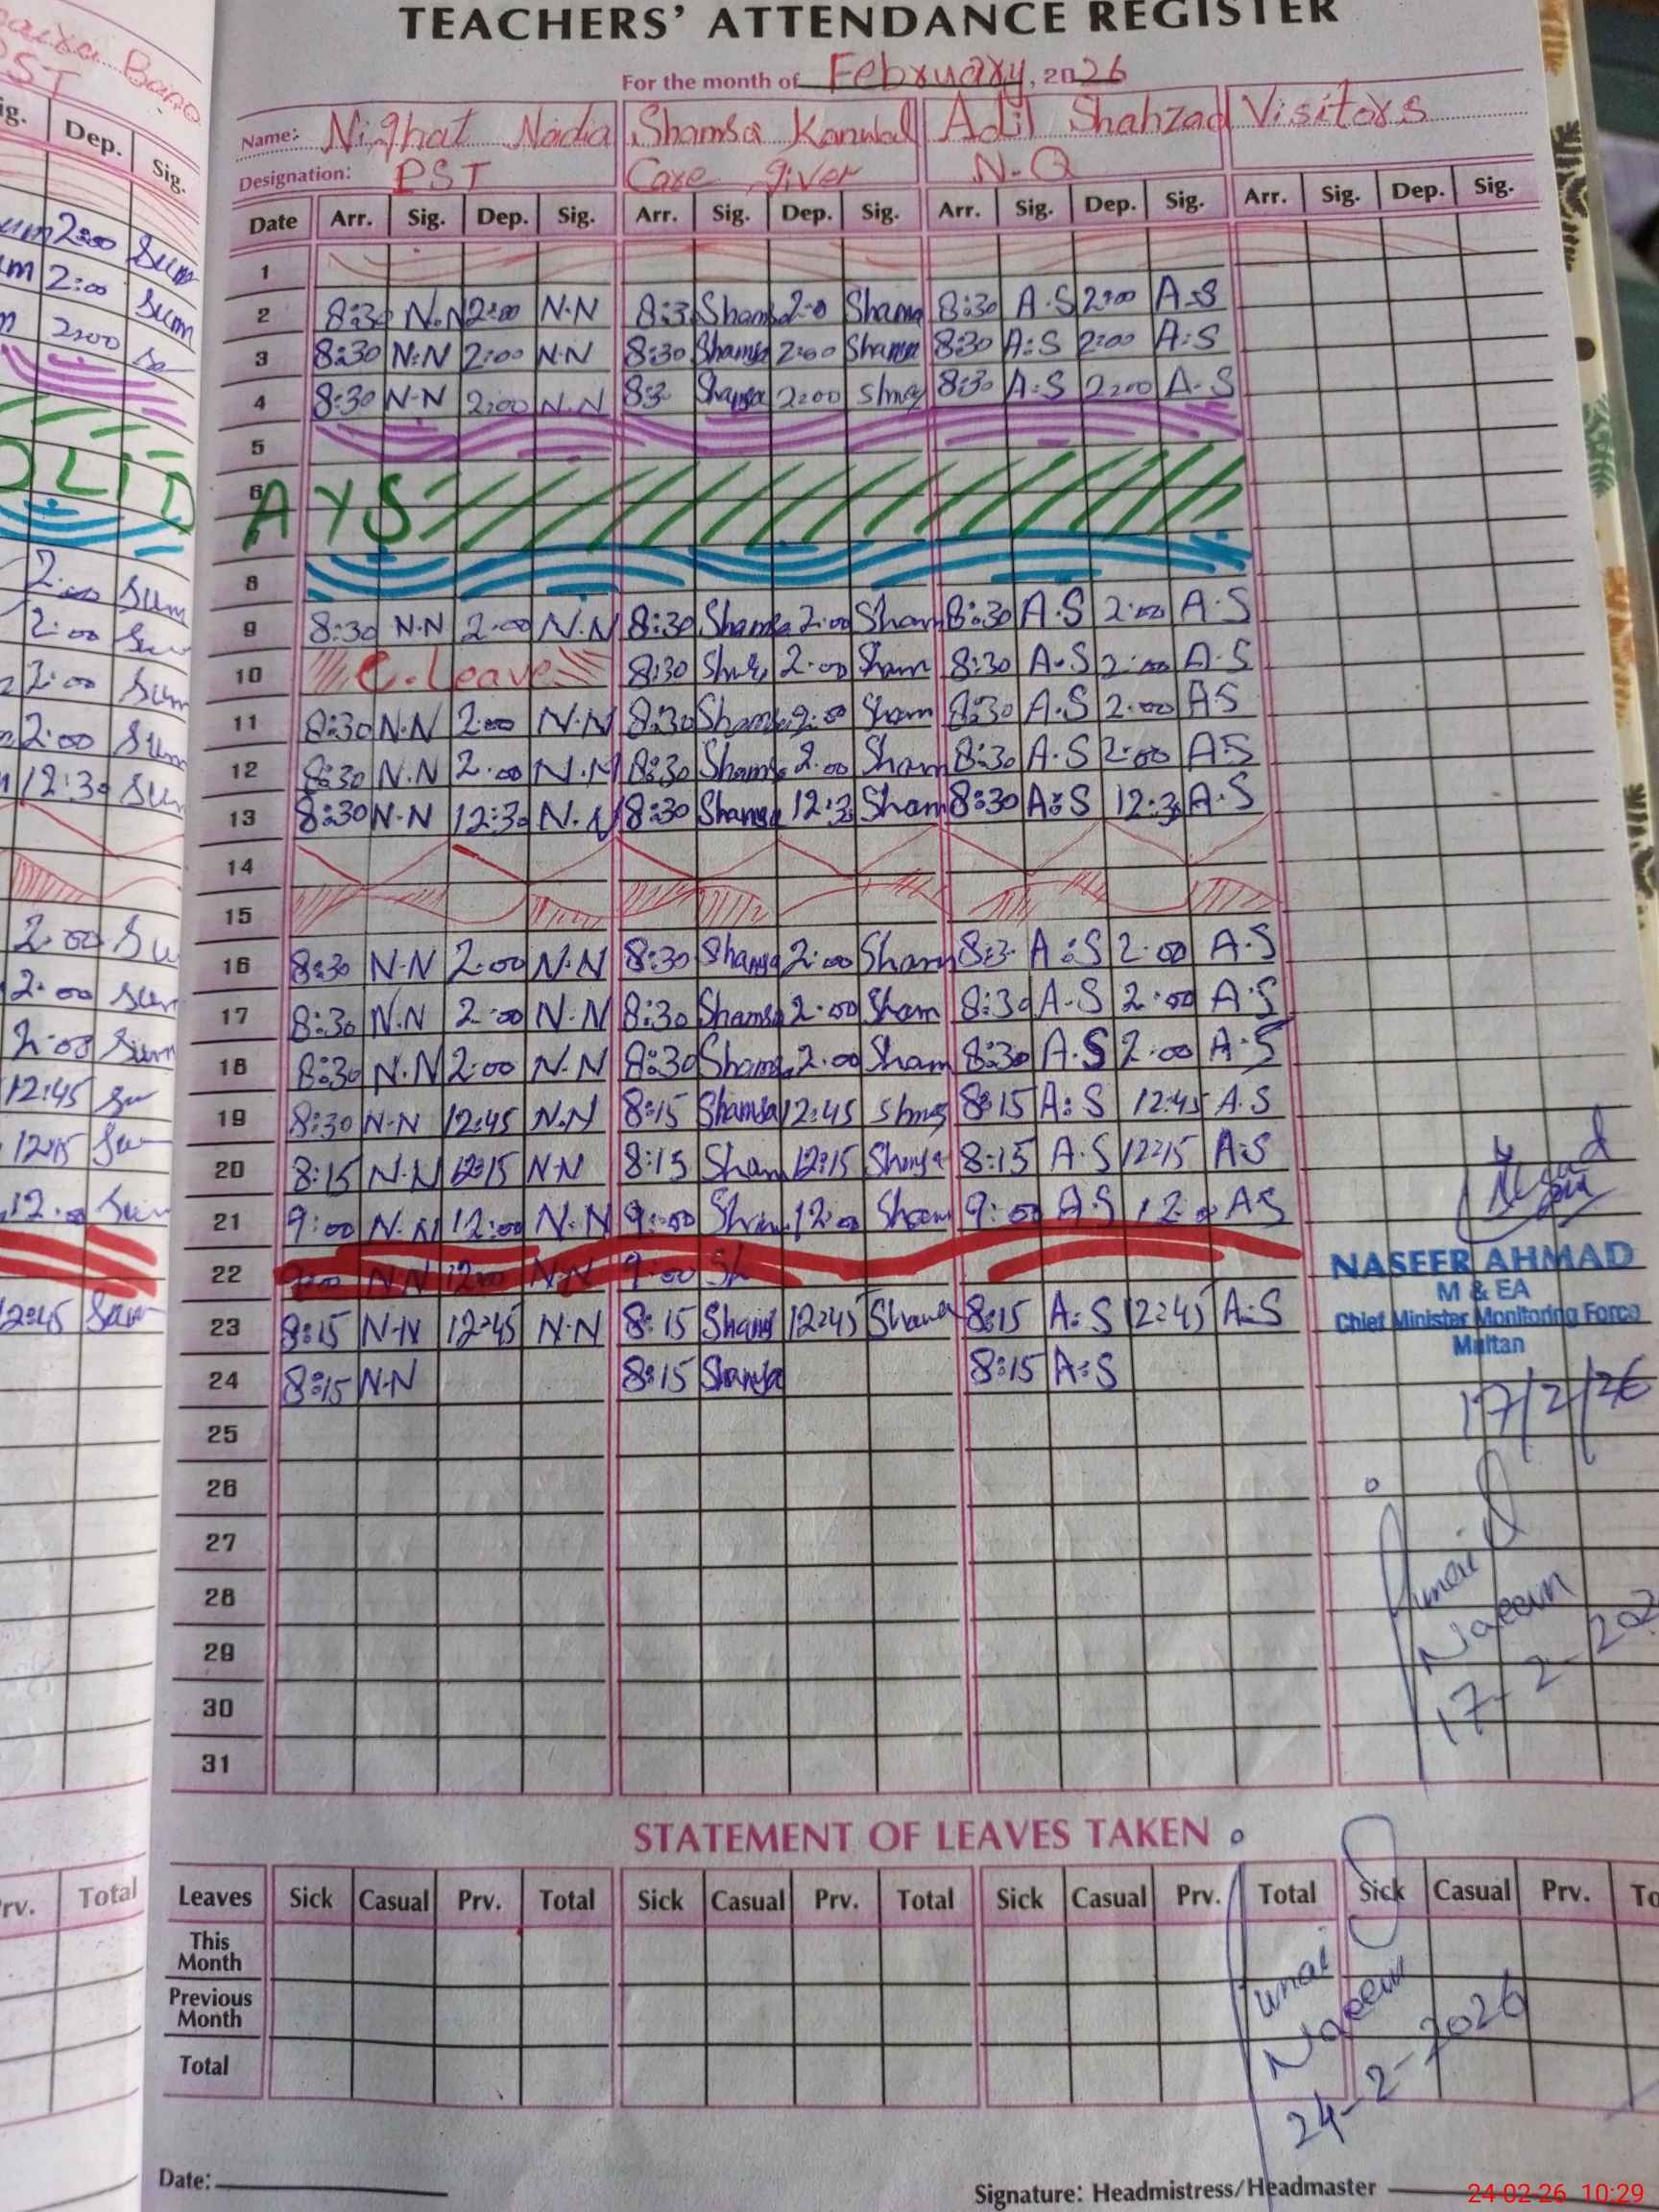 TEACHERS' ATTENDANCE REGISTER
For the month of February, 2026
Name: Nighat Nadia Shamsa Kanwal Adil Shahzad Visitors
Designation: PST Care giver N.Q
Date Arr. Sig. Dep. Sig. Arr. Sig. Dep. Sig. Arr. Sig. Dep. Sig. Arr. Sig. Dep. Sig.
1
2 8:30 N.N 2:00 N.N 8:3 Shams 2:0 Shama 8:30 A.S 2:00 A.S
3 8:30 N:N 2:00 N.N 8:30 Shamsa 2:00 Shamsa 8:30 A:S 2:00 A:S
4 8:30 N-N 2:00 N.N 8:3 Shamsa 2:00 8:30 A:S 2:00 A.S
5
6 AYS
8
9 8:30 N.N 2:00 N.N 8:30 Shamsa 2:00 Sham 8:30 A.S 2:00 A.S
10 C.Leave 8:30 2:00 Sham 8:30 A.S 2:00 A.S
11 8:30 N.N 2:00 N.N 8:30 Shams 2:00 Sham 8:30 A.S 2:00 A.S
12 8:30 N.N 2:00 N.N 8:30 Shams 2:00 Sham 8:30 A.S 2:00 A.S
13 8:30 N-N 12:30 N.N 8:30 Shamsa 12:3 Sham 8:30 A:S 12:3 A.S
14
15
16 8:30 N-N 2:00 N.N 8:30 Shamsa 2:00 Sham 8:3 A:S 2:00 A.S
17 8:30 N.N 2:00 N.N 8:30 Shamsa 2:00 Sham 8:30 A.S 2:00 A.S
18 8:30 N.N 2:00 N.N 8:30 Shams 2:00 Sham 8:30 A.S 2:00 A.S
19 8:30 N-N 12:45 N.N 8:15 Shamsa 12:45 8:15 A:S 12:45 A.S
20 8:15 N.N 12:15 N-N 8:15 Sham 12:15 Shamsa 8:15 A.S 12:15 A:S
21 9:00 N.N 12:00 N.N 9:00 12:00 Sham 9:00 A.S 12:0 A.S
22 9:00 N.N 12:00 N.N 9:00 Sh
23 8:15 N-N 12:45 N.N 8:15 Shams 12:45 Shama 8:15 A:S 12:45 A:S
24 8:15 N-N 8:15 Shamsa 8:15 A:S
25
26
27
28
29
30
31
NASEER AHMAD
M & EA
Chief Minister Monitoring Force
Multan
17/2/26
Naeem
17-2-202
STATEMENT OF LEAVES TAKEN
Leaves Sick Casual Prv. Total Sick Casual Prv. Total Sick Casual Prv. Total Sick Casual Prv. To
This Month
Previous Month
Total
Naeem
24-2-2026
Date:
Signature: Headmistress/Headmaster
24 02 26 10:29
Bano
ST
ig. Dep. Sig.
2:00 Sum
2:00 Sum
2:00
OLID
2:00 Sum
2:00
2:00 Sum
2:00 Sum
12:30
2:00 Su
2:00
2:00 Sum
12:45
12:15
12:0
12:45
rv. Total